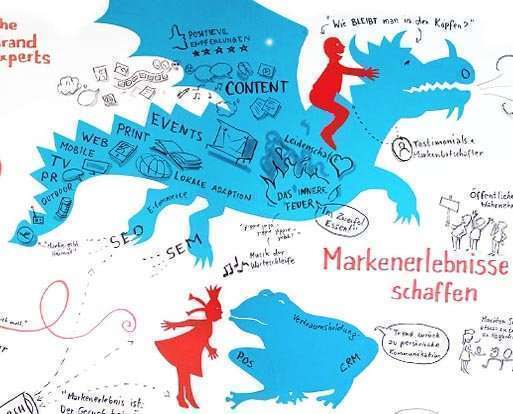 the
Brand
Experts
POSITIVE
EMPFEHLUNGEN
"Wie BLEIBT man in den Köpfen?"
CONTENT
EVENTS
PRINT
WEB
MOBILE
TV
PR
OUTDOOR
Leidenschaft
LOKALE ADAPTION
DAS INNERE
FEUER
E-Commerce
Im Zweifel
Essen!
Testimonials +
Markenbotschafter
Öffentliche
SEO
SEM
Musik der
Warteschleife
Markenerlebnisse
schaffen
Vertrauensbildung
POS
CRM
Trend zurück
zu persönliche
Kommunikation
"Markenerlebnis ist
Der Geruch